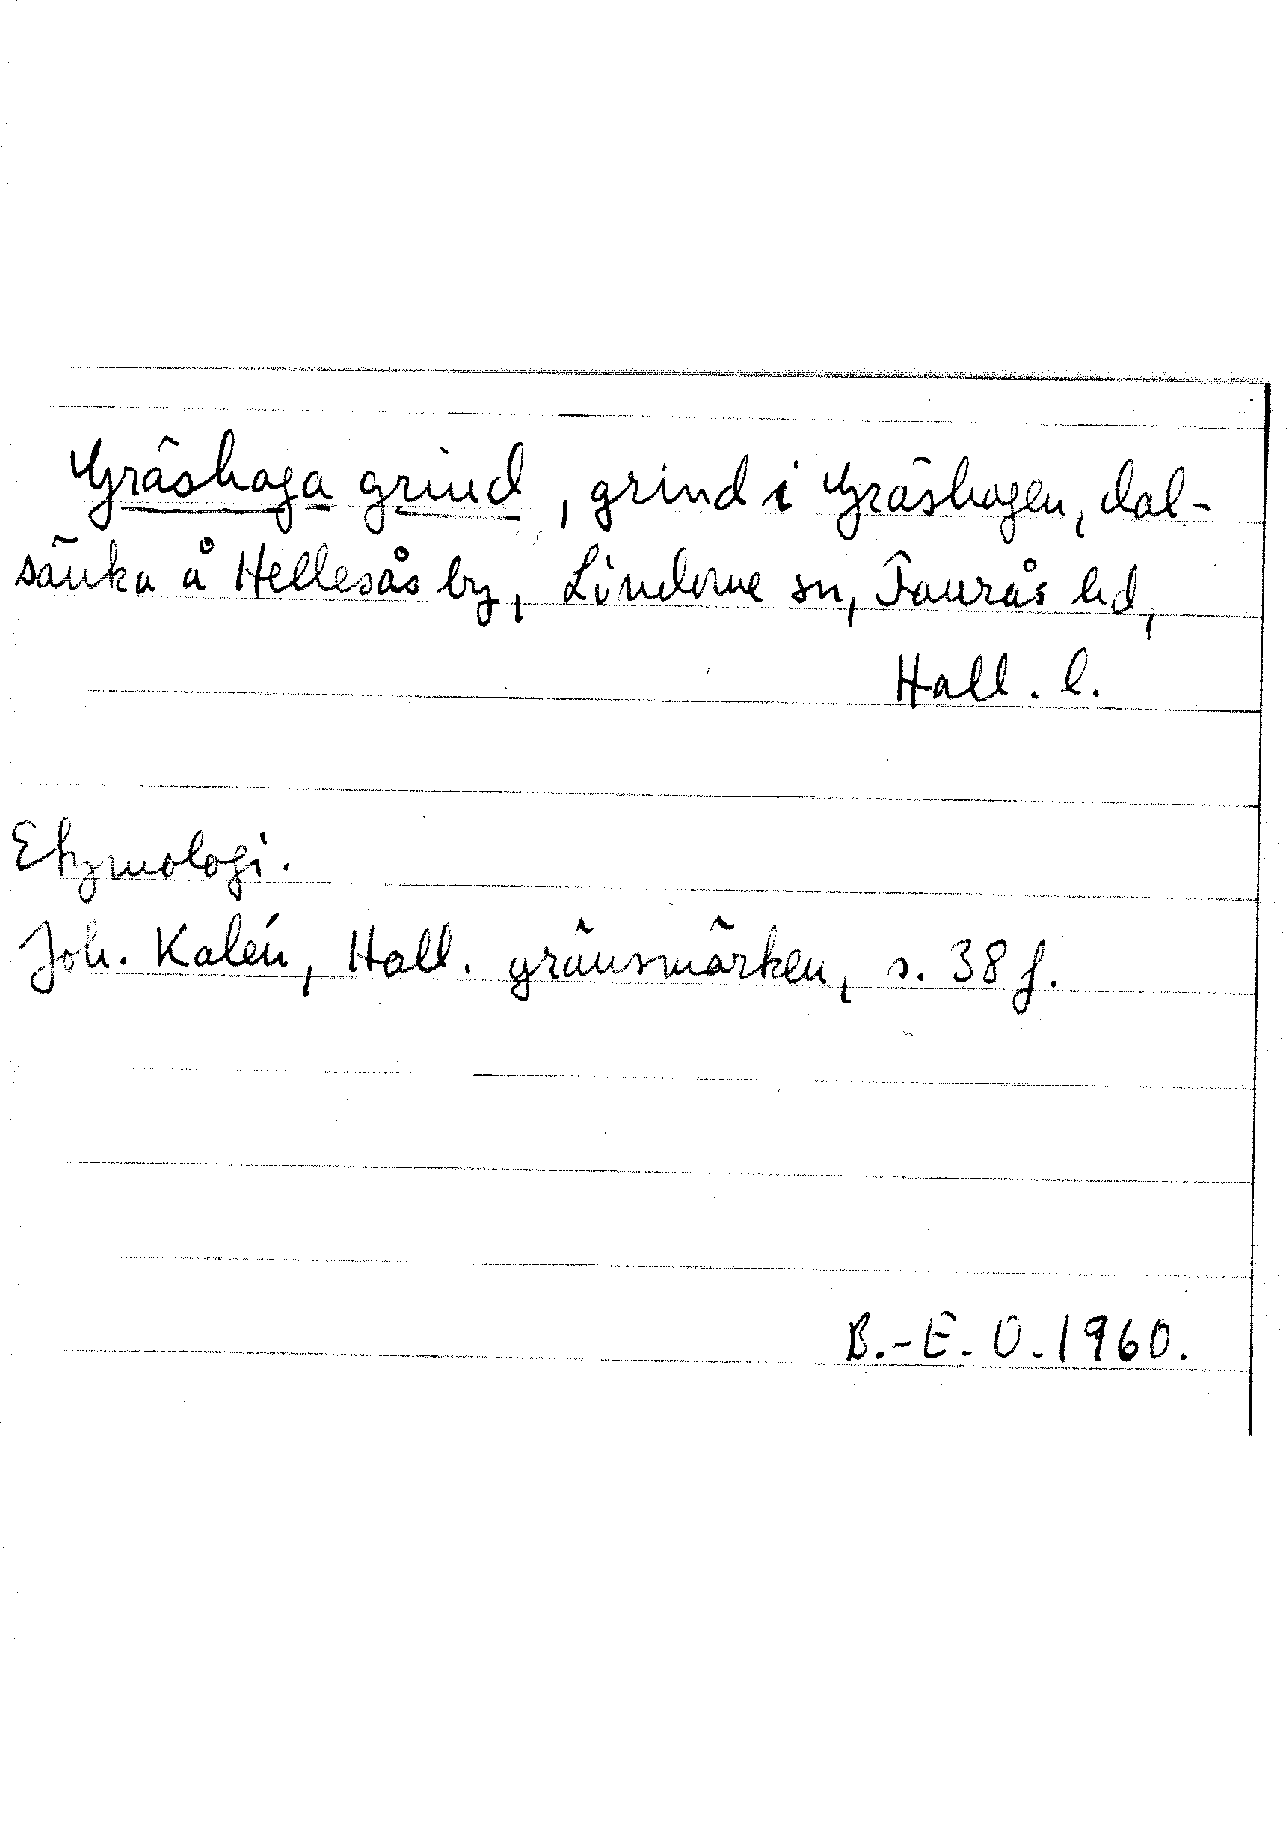 Gräshaga grind, grind i Gräshagen, dal-
sänka å Hellesås by, Lindome sn, Faurås hd,
Hall. l.
Etymologi.
Joh. Kalén, Hall. gränsmärken, s. 38 f.
B.-E. O. 1960.